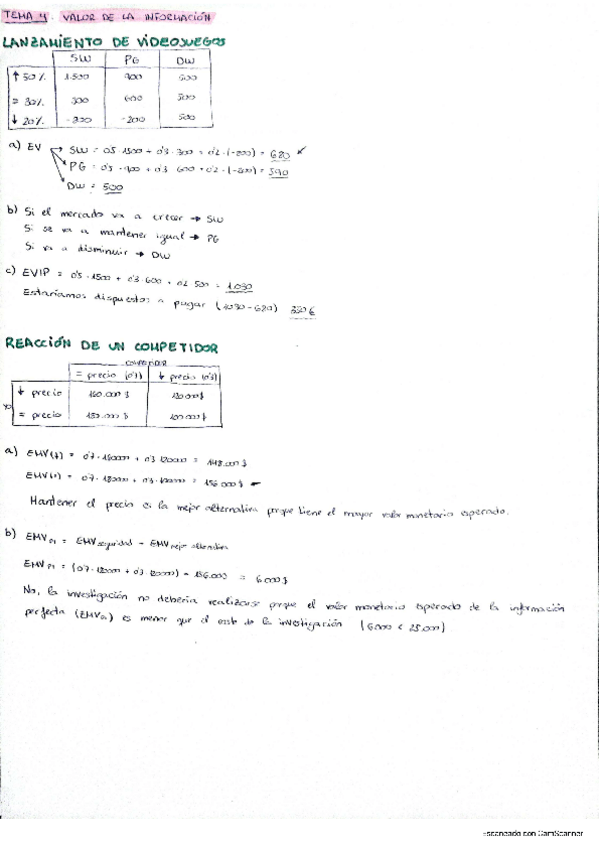 TEMA 4. VALOR DE LA INFORMACIÓN
LANZAMIENTO DE VIDEOJUEGOS
SW PG DW
↑ 50% 1.500 900 500
= 30% 300 600 500
↓ 20% -200 500
a) EV
SW = 0'5 · 1500 + 0'3 · 300 + 0'2 · = 620
PG = 0'5 · 900 + 0'3 · 600 + 0'2 · = 590
DW = 500
b) Si el mercado va a crecer → SW
Si se va a mantener igual → PG
Si va a disminuir → DW
c) EVIP = 0'5 · 1500 + 0'3 · 600 + 0'2 · 500 = 1.030
Estaríamos dispuestos a pagar (1030 - 620)
REACCIÓN DE UN COMPETIDOR
competidor
= precio (0'7) ↓ precio (0'3)
yo
↓ precio 160.000 $ 120.000 $
= precio
a) EMV(↓) = 0'7 · 160000 + 0'3 · 120000 = 148.000 $
EMV(=) = 0'7 · 180000 + 0'3 · = 156.000 $
Mantener el precio es la mejor alternativa porque tiene el mayor valor monetario esperado.
b) EMV PI = EMV seguridad - EMV mejor alternativa
EMV PI = (0'7 · 180000 + 0'3 · 120000) - 156.000 = 6000 $
No, la investigación no debería realizarse porque el valor monetario esperado de la información
perfecta (EMV PI) es menor que el coste de la investigación (6000 < 25.000)
Escaneado con CamScanner